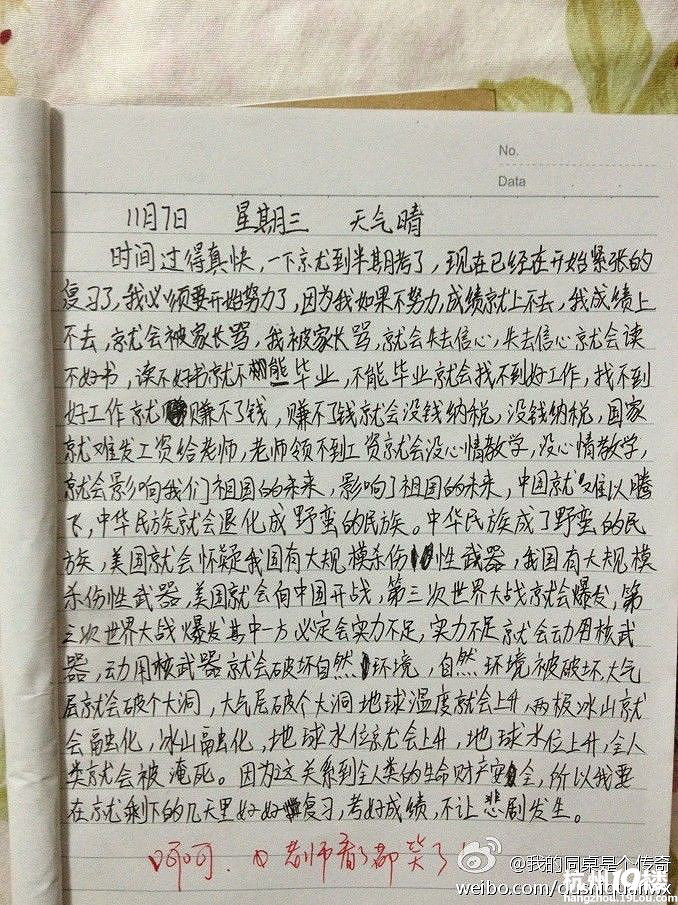 No.
Data
11月7日 星期三 天气晴
时间过得真快，一下就到半期考了，现在已经在开始紧张的
复习了，我必须要开始努力了，因为我如果不努力，成绩就上不去，我成绩上
不去，就会被家长骂，我被家长骂，就会失去信心，失去信心就会读
不好书，读不好书就不能毕业，不能毕业就会找不到好工作，找不到
好工作就赚不了钱，赚不了钱就会没钱纳税，没钱纳税，国家
就难发工资给老师，老师领不到工资就会没心情教学，没心情教学，
就会影响我们祖国的未来，影响了祖国的未来，中国就难以腾
飞，中华民族就会退化成野蛮的民族。中华民族成了野蛮的民
族，美国就会怀疑我国有大规模杀伤性武器，我国有大规模
杀伤性武器，美国就会向中国开战，第三次世界大战就会爆发，第
三次世界大战爆发其中一方必定会实力不足，实力不足就会动用核武
器，动用核武器就会破坏自然环境，自然环境被破坏，大气
层就会破个大洞，大气层破个大洞地球温度就会上升，两极冰山就
会融化，冰山融化，地球水位就会上升，地球水位上升，全人
类就会被淹死。因为这关系到全人类的生命财产安全，所以我要
在就剩下的几天里好好复习，考好成绩，不让悲剧发生。
呵呵．老师看了都笑了！
@我的同桌是个传奇
weibo.com/dushiquanwx
杭州19楼
hangzhou.19lou.com